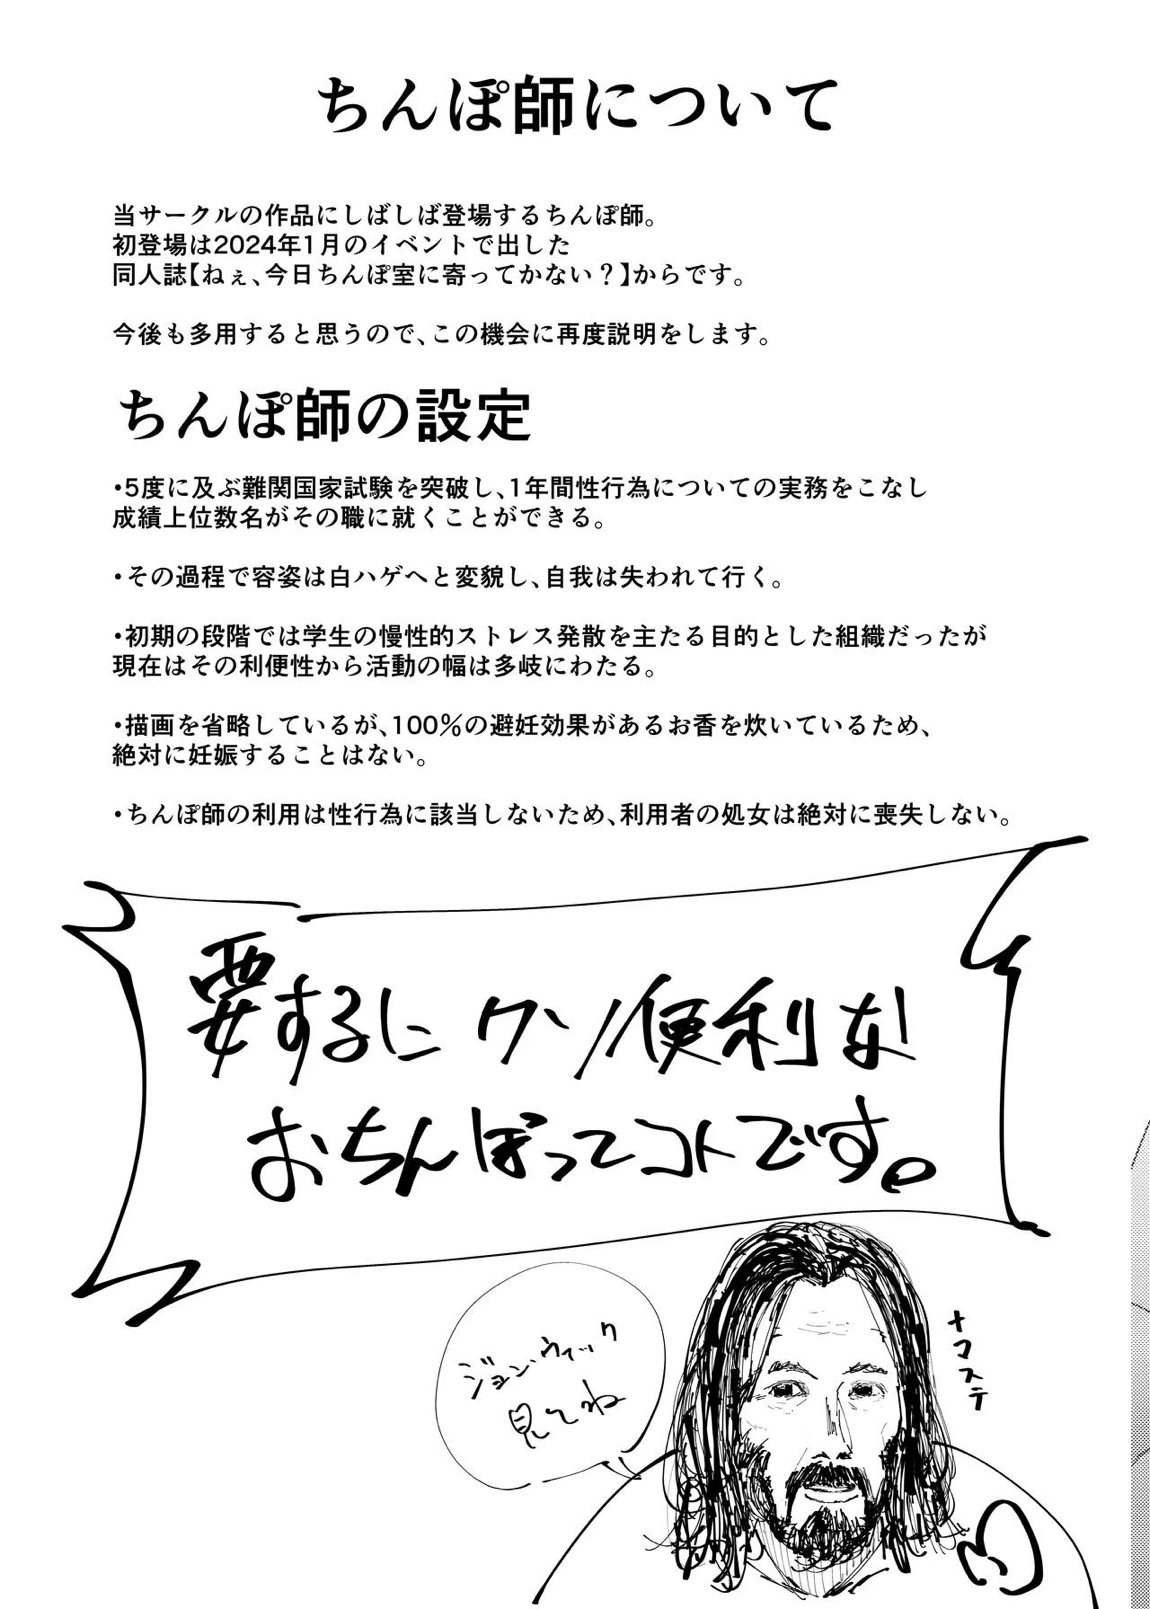 ちんぽ師について
当サークルの作品にしばしば登場するちんぽ師。
初登場は2024年1月のイベントで出した
同人誌【ねぇ、今日ちんぽ室に寄ってかない？】からです。
今後も多用すると思うので、この機会に再度説明をします。
ちんぽ師の設定
・5度に及ぶ難関国家試験を突破し、1年間性行為についての実務をこなし
成績上位数名がその職に就くことができる。
・その過程で容姿は白ハゲへと変貌し、自我は失われて行く。
・初期の段階では学生の慢性的ストレス発散を主たる目的とした組織だったが
現在はその利便性から活動の幅は多岐にわたる。
・描画を省略しているが、100％の避妊効果があるお香を炊いているため、
絶対に妊娠することはない。
・ちんぽ師の利用は性行為に該当しないため、利用者の処女は絶対に喪失しない。
要するにクソ便利な
おちんぽってコトです。
ジョン・ウィック
見てね
ナマステ